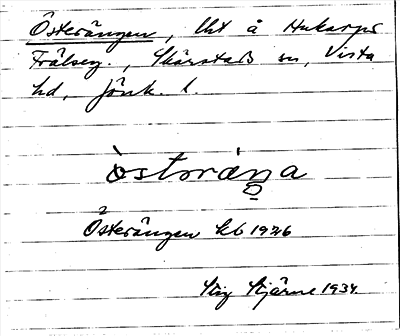 Österängen, lht å Hukarps
Frälseg., Skärstads sn, Vista
hd, Jönk. l.
òstoráŋa
Österängen kb 1926
Stig Stjärne 1934